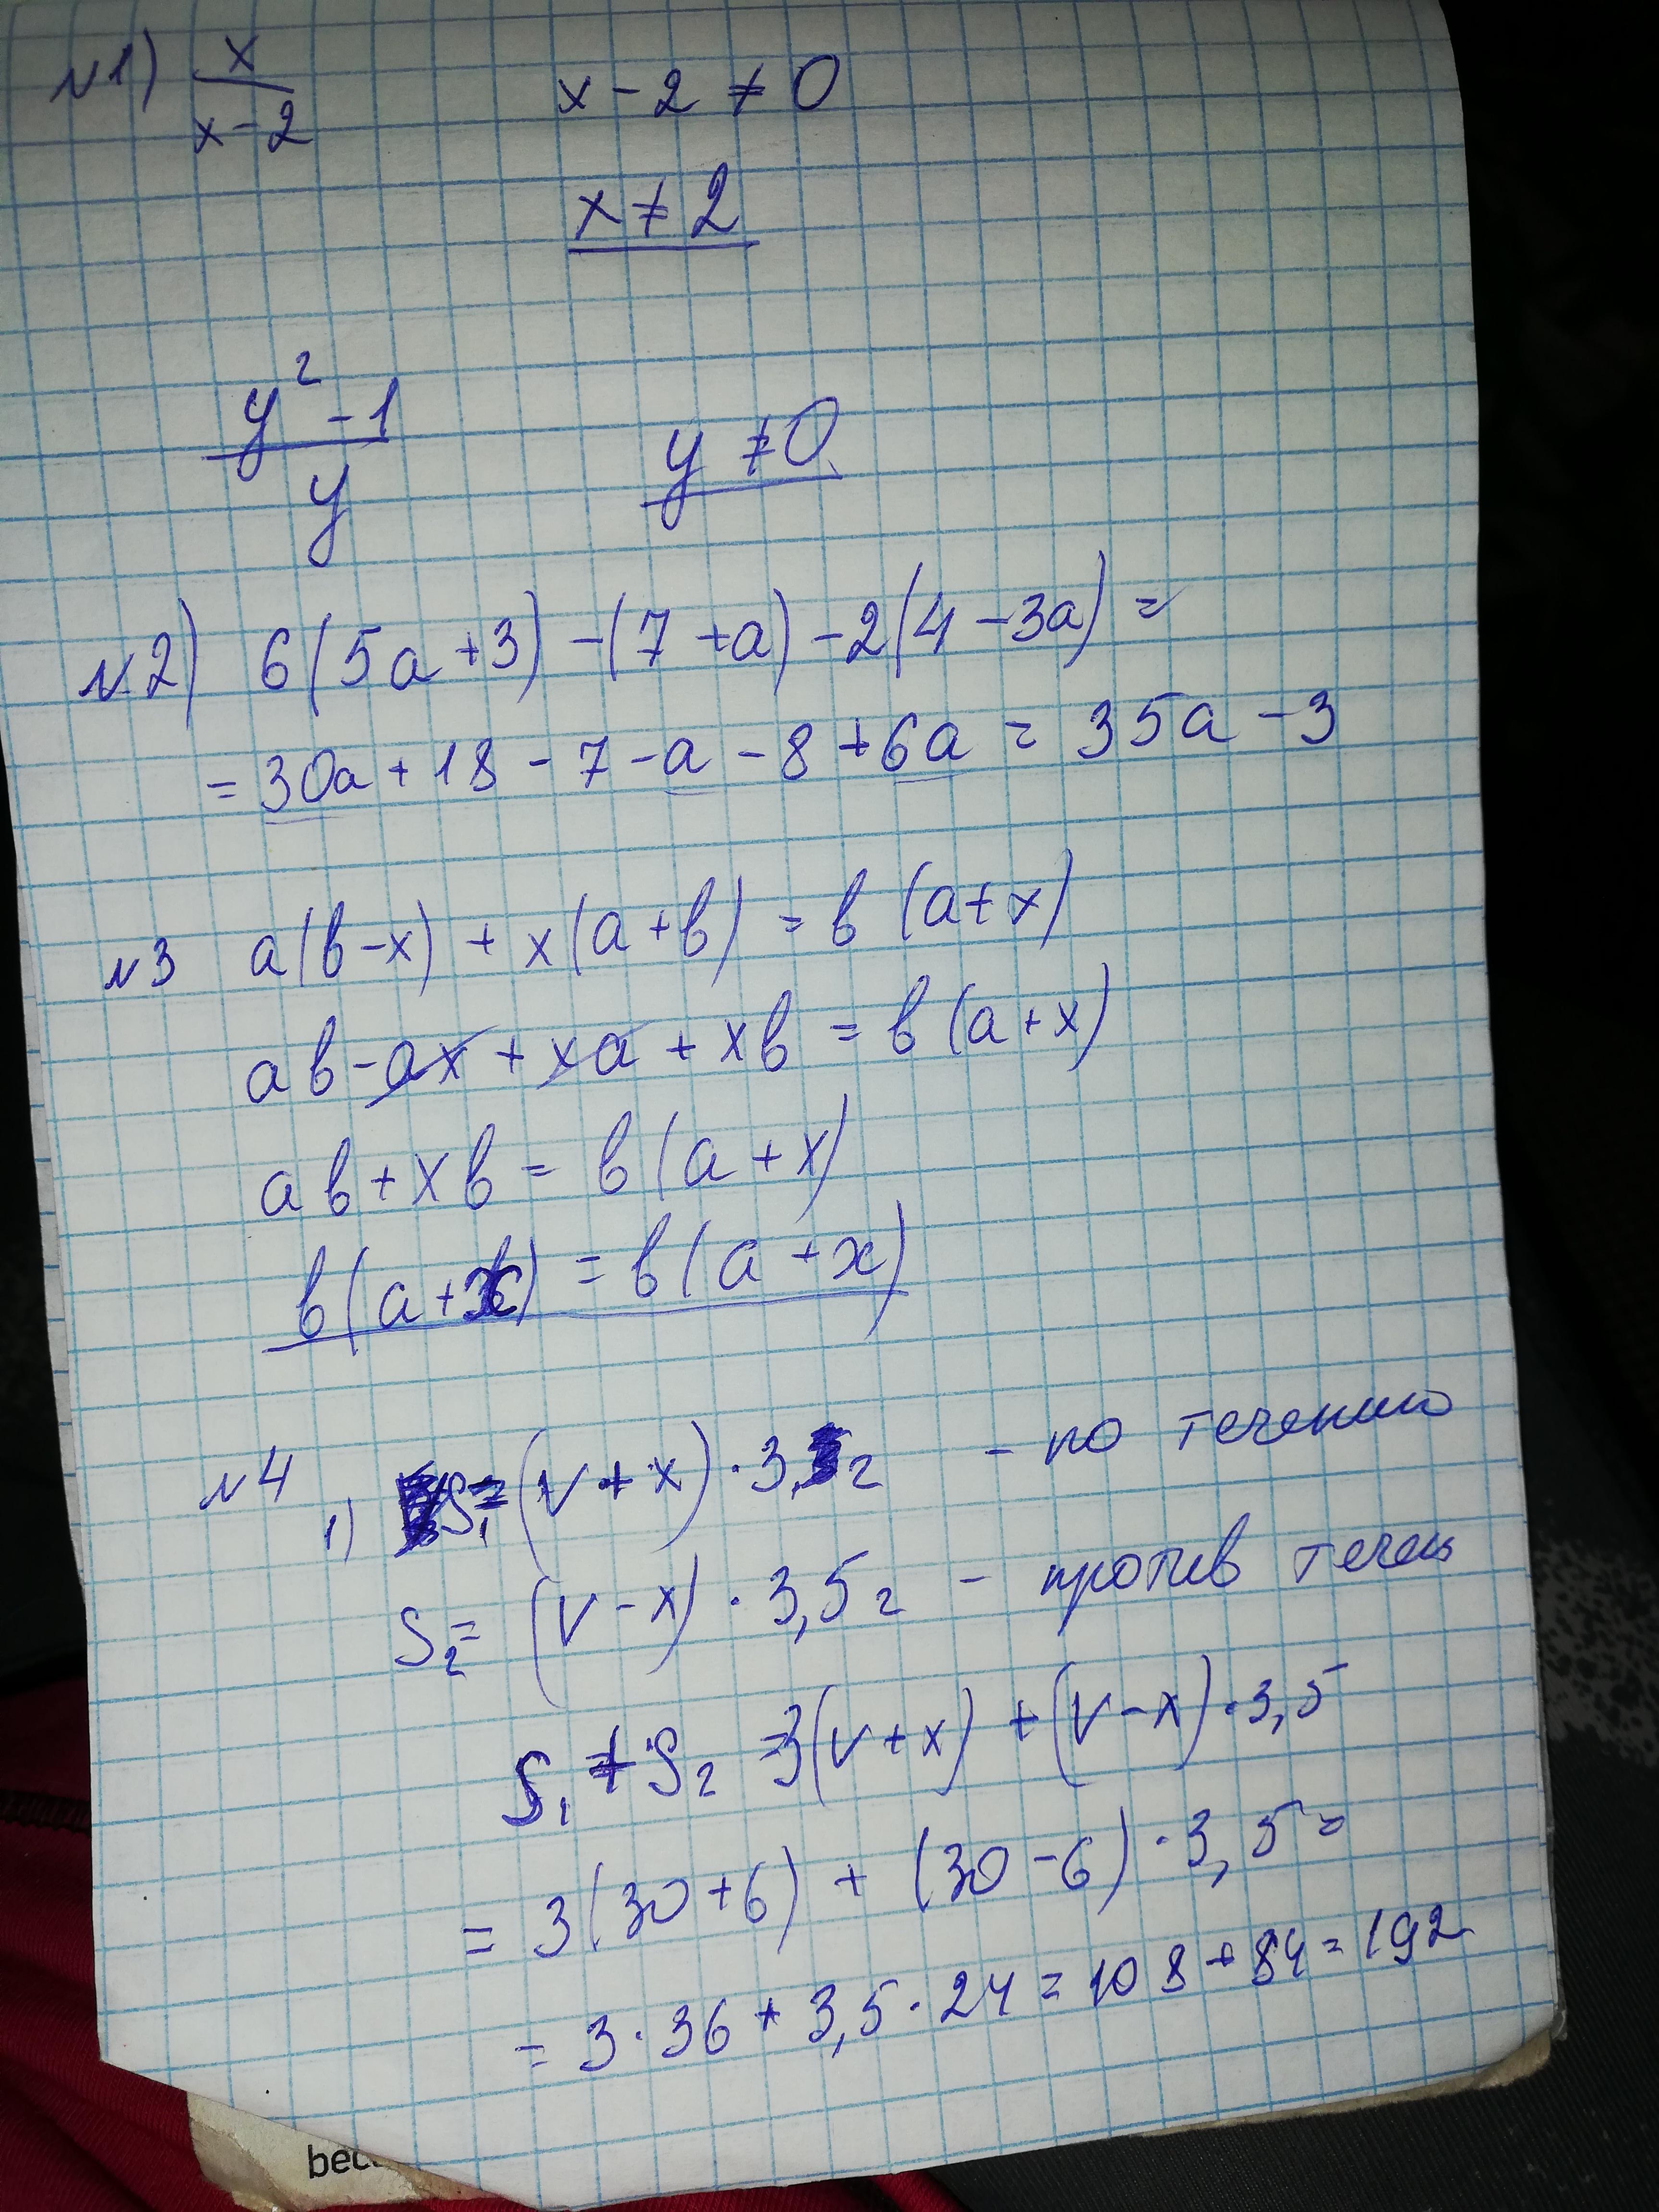 №1) x/(x-2)    x-2≠0
x≠2
(y²-1)/y    y≠0
№2) 6(5a+3)-(7+a)-2(4-3a)=
=30a+18-7-a-8+6a=35a-3
№3 a(в-x)+x(a+в)=в(a+x)
aв-ax+xa+xв=в(a+x)
aв+xв=в(a+x)
в(a+x)=в(a+x)
№4 1) S₁=(v+x)·3 г - по течению
S₂=(v-x)·3,5 г - против течен
S₁+S₂=3(v+x)+(v-x)·3,5
=3(30+6)+(30-6)·3,5=
=3·36+3,5·24=108+84=192